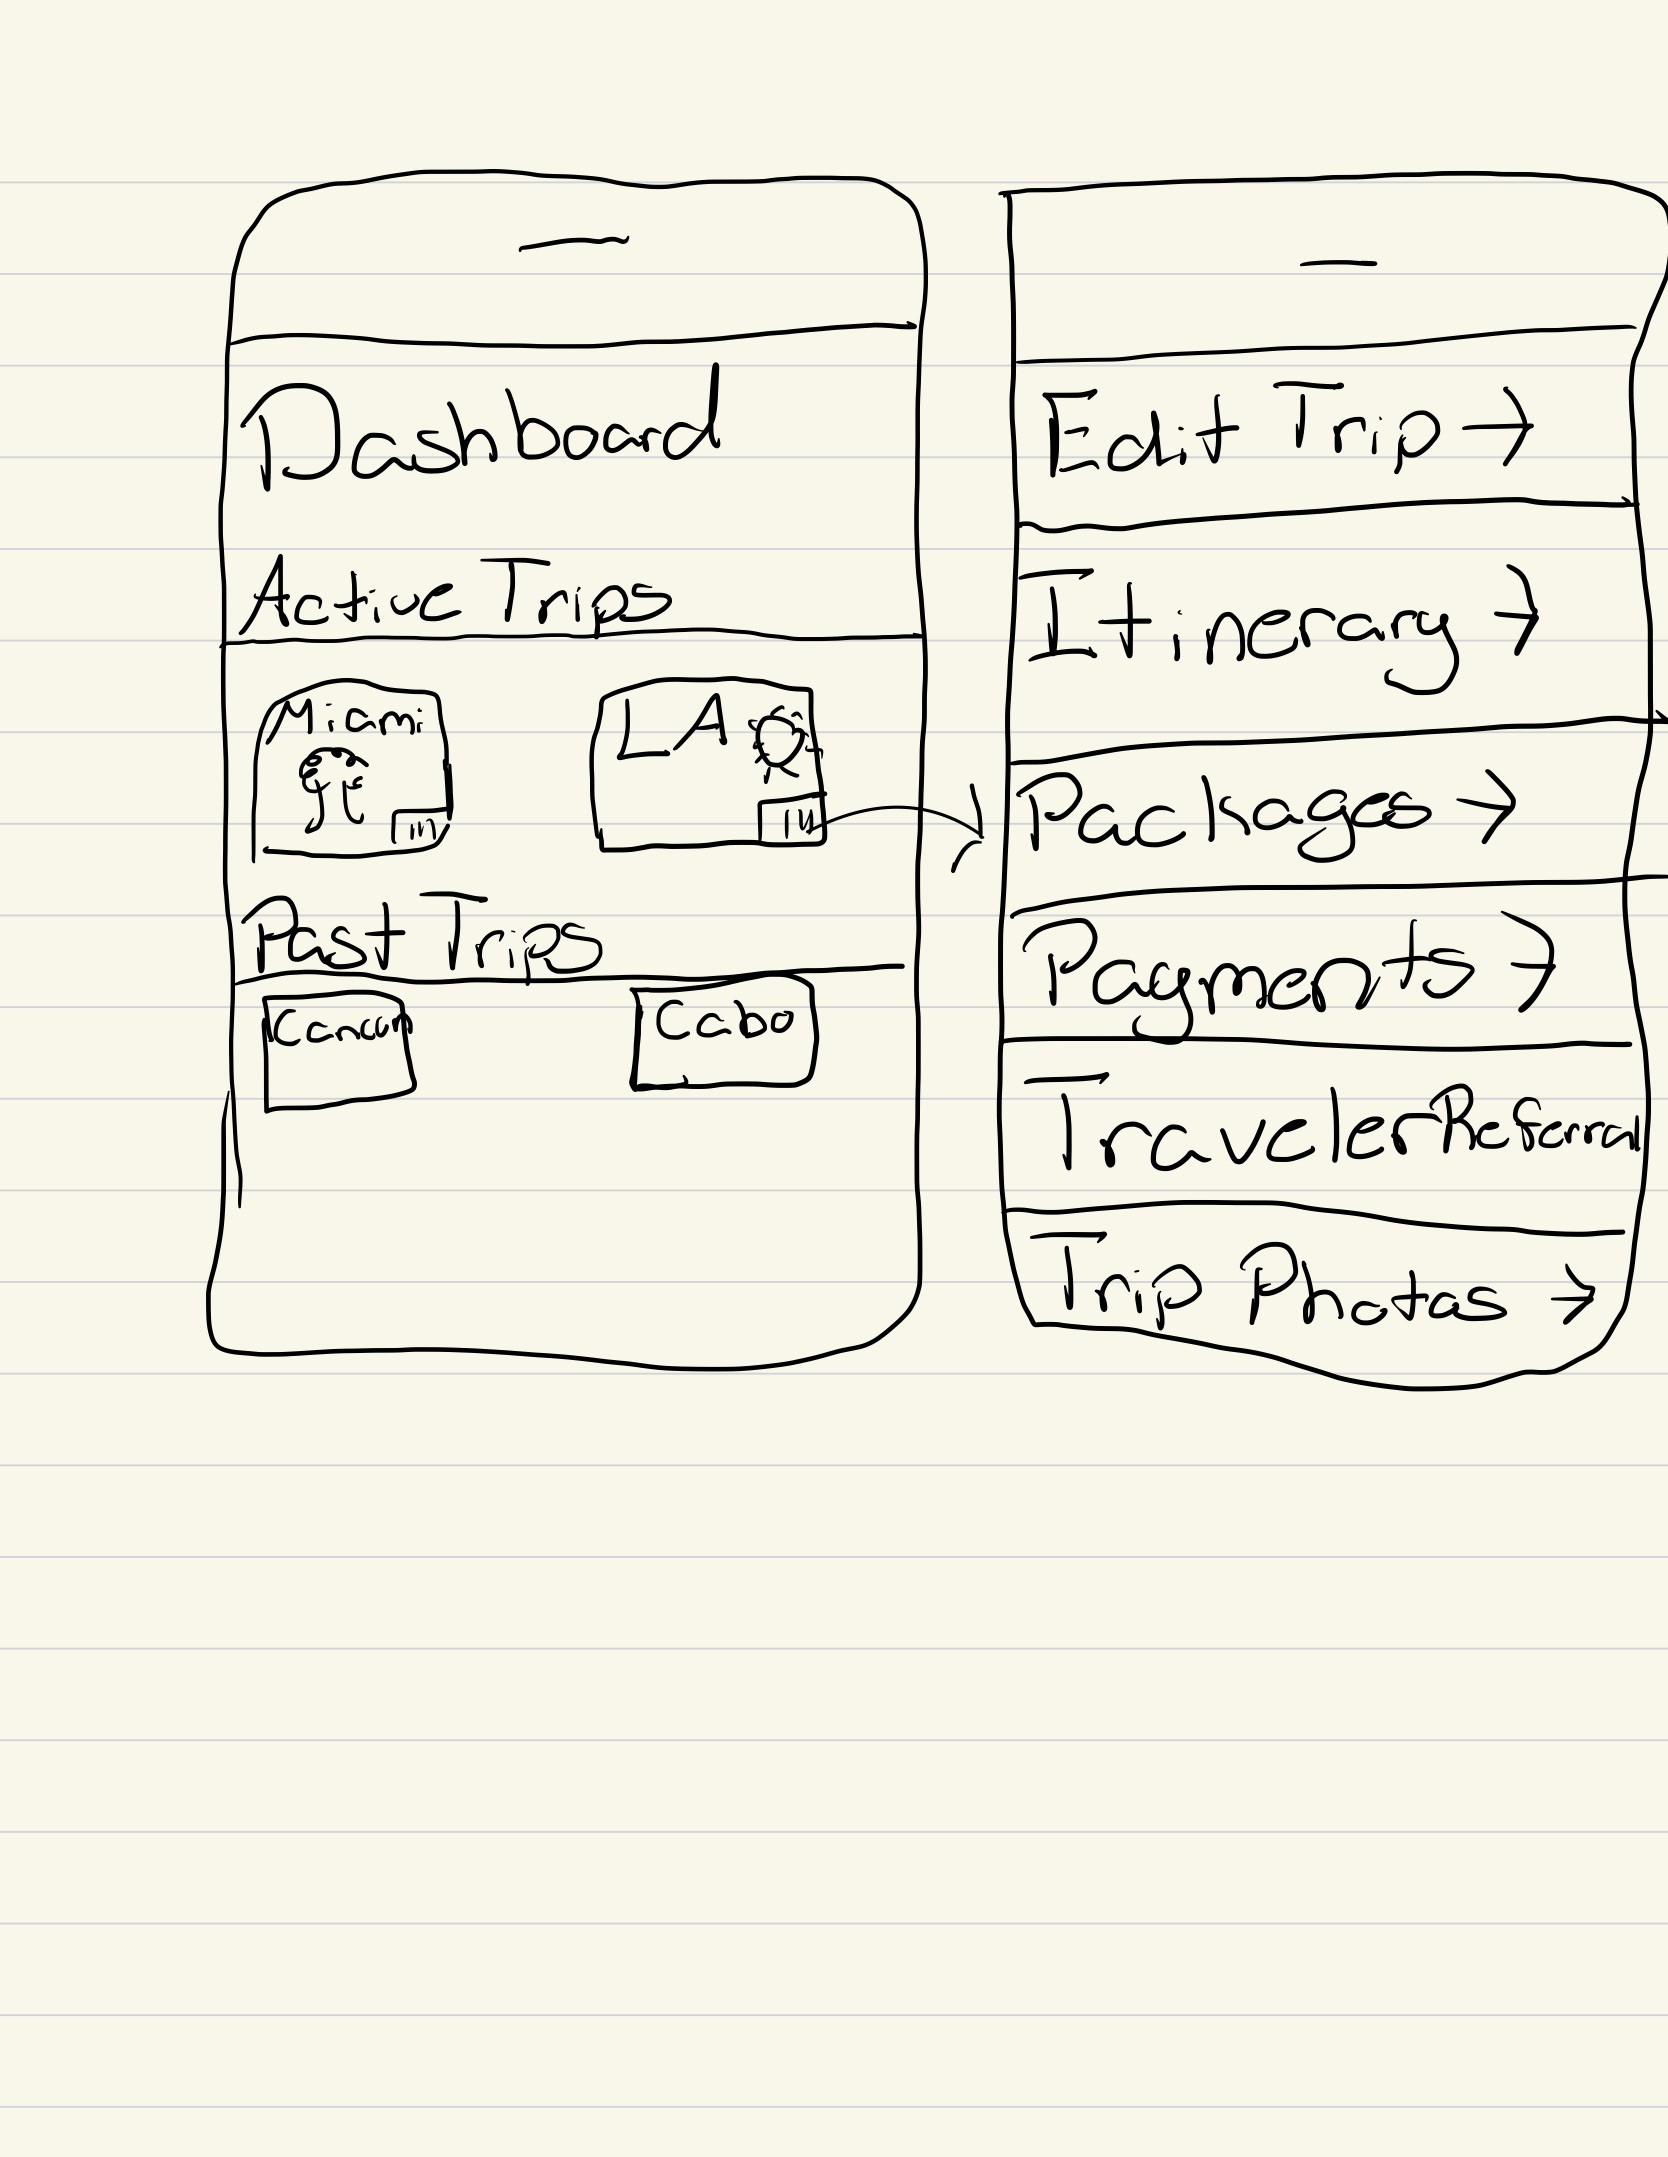 Dashboard
Active Trips
Miami
LA
Past Trips
Cancun
Cabo
Edit Trip →
Itinerary →
Packages →
Payments →
Traveler Referral
Trip Photos →